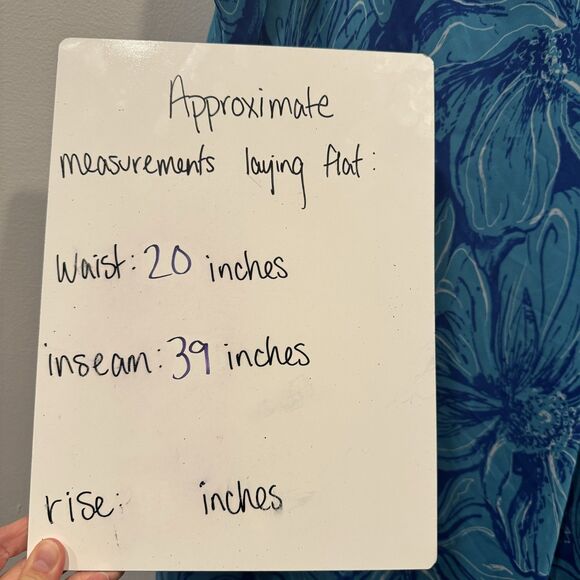 Approximate
measurements laying flat:
Waist: 20 inches
inseam: 39 inches
rise: inches